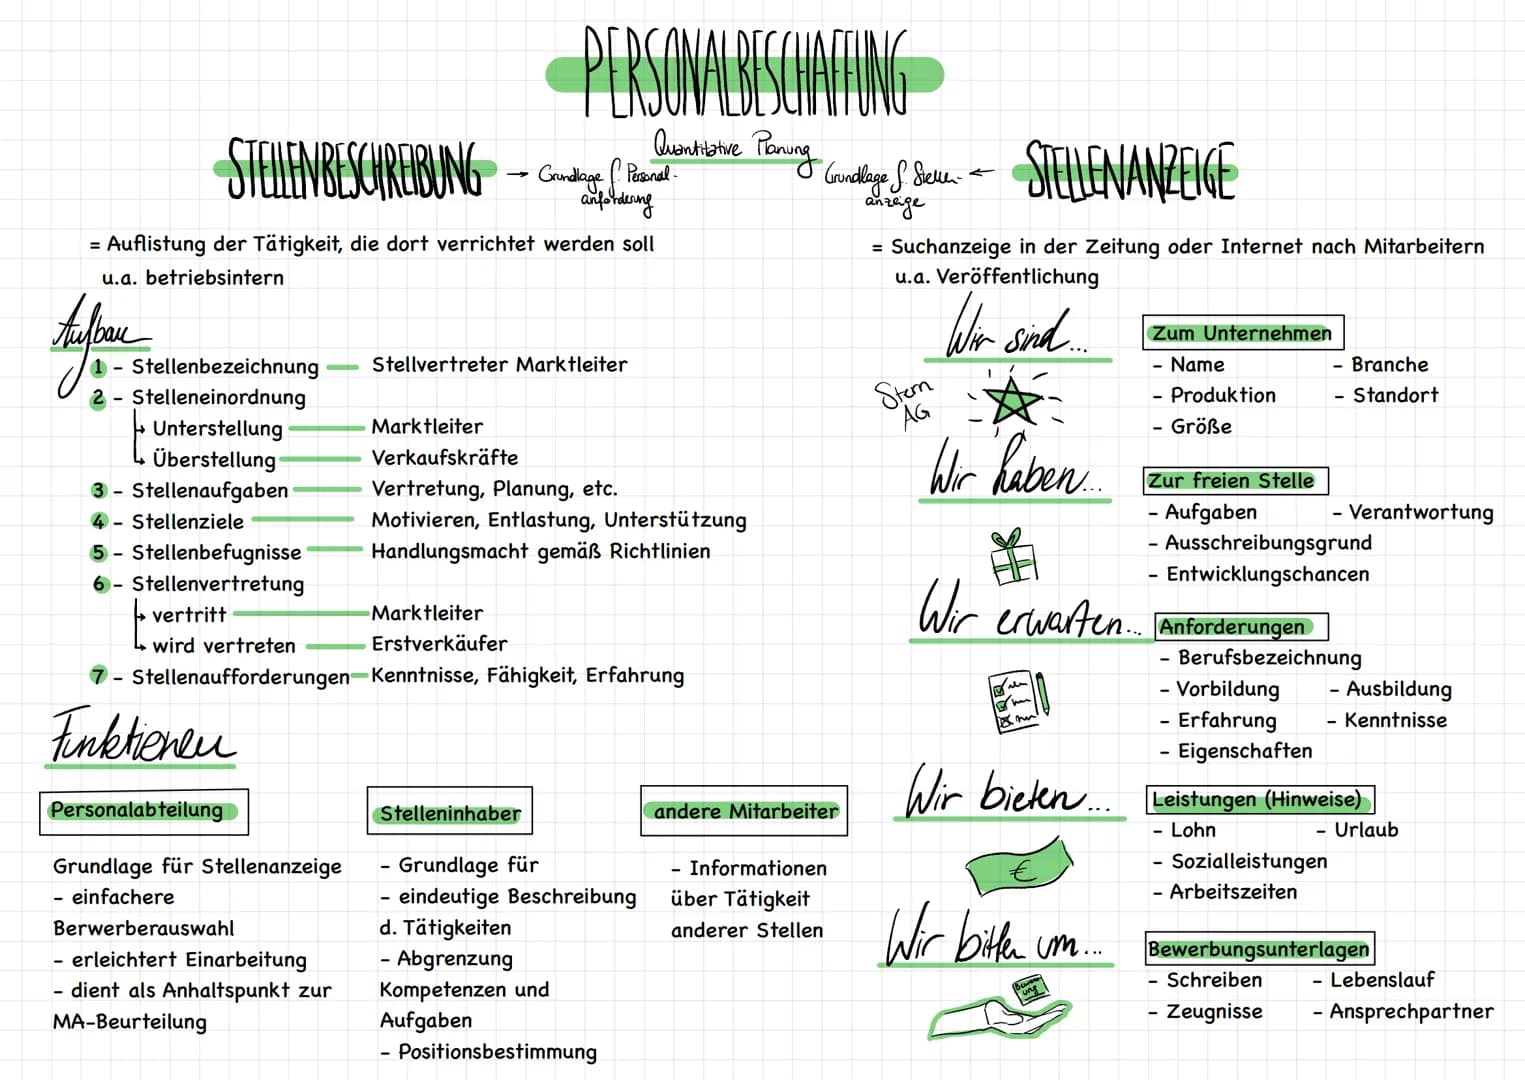 PERSONALBESCHAFFUNG
Quantitative Planung
STELLENBESCHREIBUNG → Grundlage f. Personal-
anforderung
= Auflistung der Tätigkeit, die dort verrichtet werden soll
u.a. betriebsintern
Aufbau
1 - Stellenbezeichnung Stellvertreter Marktleiter
2 - Stelleneinordnung
↳ Unterstellung Marktleiter
↳ Überstellung Verkaufskräfte
3 - Stellenaufgaben Vertretung, Planung, etc.
4 - Stellenziele Motivieren, Entlastung, Unterstützung
5 - Stellenbefugnisse Handlungsmacht gemäß Richtlinien
6 - Stellenvertretung
↳ vertritt Marktleiter
↳ wird vertreten Erstverkäufer
7 - Stellenaufforderungen Kenntnisse, Fähigkeit, Erfahrung
Funktionen
Personalabteilung
Grundlage für Stellenanzeige
- einfachere
Berwerberauswahl
- erleichtert Einarbeitung
- dient als Anhaltspunkt zur
MA-Beurteilung
Stelleninhaber
- Grundlage für
- eindeutige Beschreibung
d. Tätigkeiten
- Abgrenzung
Kompetenzen und
Aufgaben
- Positionsbestimmung
andere Mitarbeiter
- Informationen
über Tätigkeit
anderer Stellen
Grundlage f. Stellen- ← STELLENANZEIGE
anzeige
= Suchanzeige in der Zeitung oder Internet nach Mitarbeitern
u.a. Veröffentlichung
Wir sind...
Stern
AG
Zum Unternehmen
- Name - Branche
- Produktion - Standort
- Größe
Wir haben...
Zur freien Stelle
- Aufgaben - Verantwortung
- Ausschreibungsgrund
- Entwicklungschancen
Wir erwarten...
Anforderungen
- Berufsbezeichnung
- Vorbildung - Ausbildung
- Erfahrung - Kenntnisse
- Eigenschaften
Wir bieten...
€
Leistungen (Hinweise)
- Lohn - Urlaub
- Sozialleistungen
- Arbeitszeiten
Wir bitten um...
Bewerbungsunterlagen
- Schreiben - Lebenslauf
- Zeugnisse - Ansprechpartner